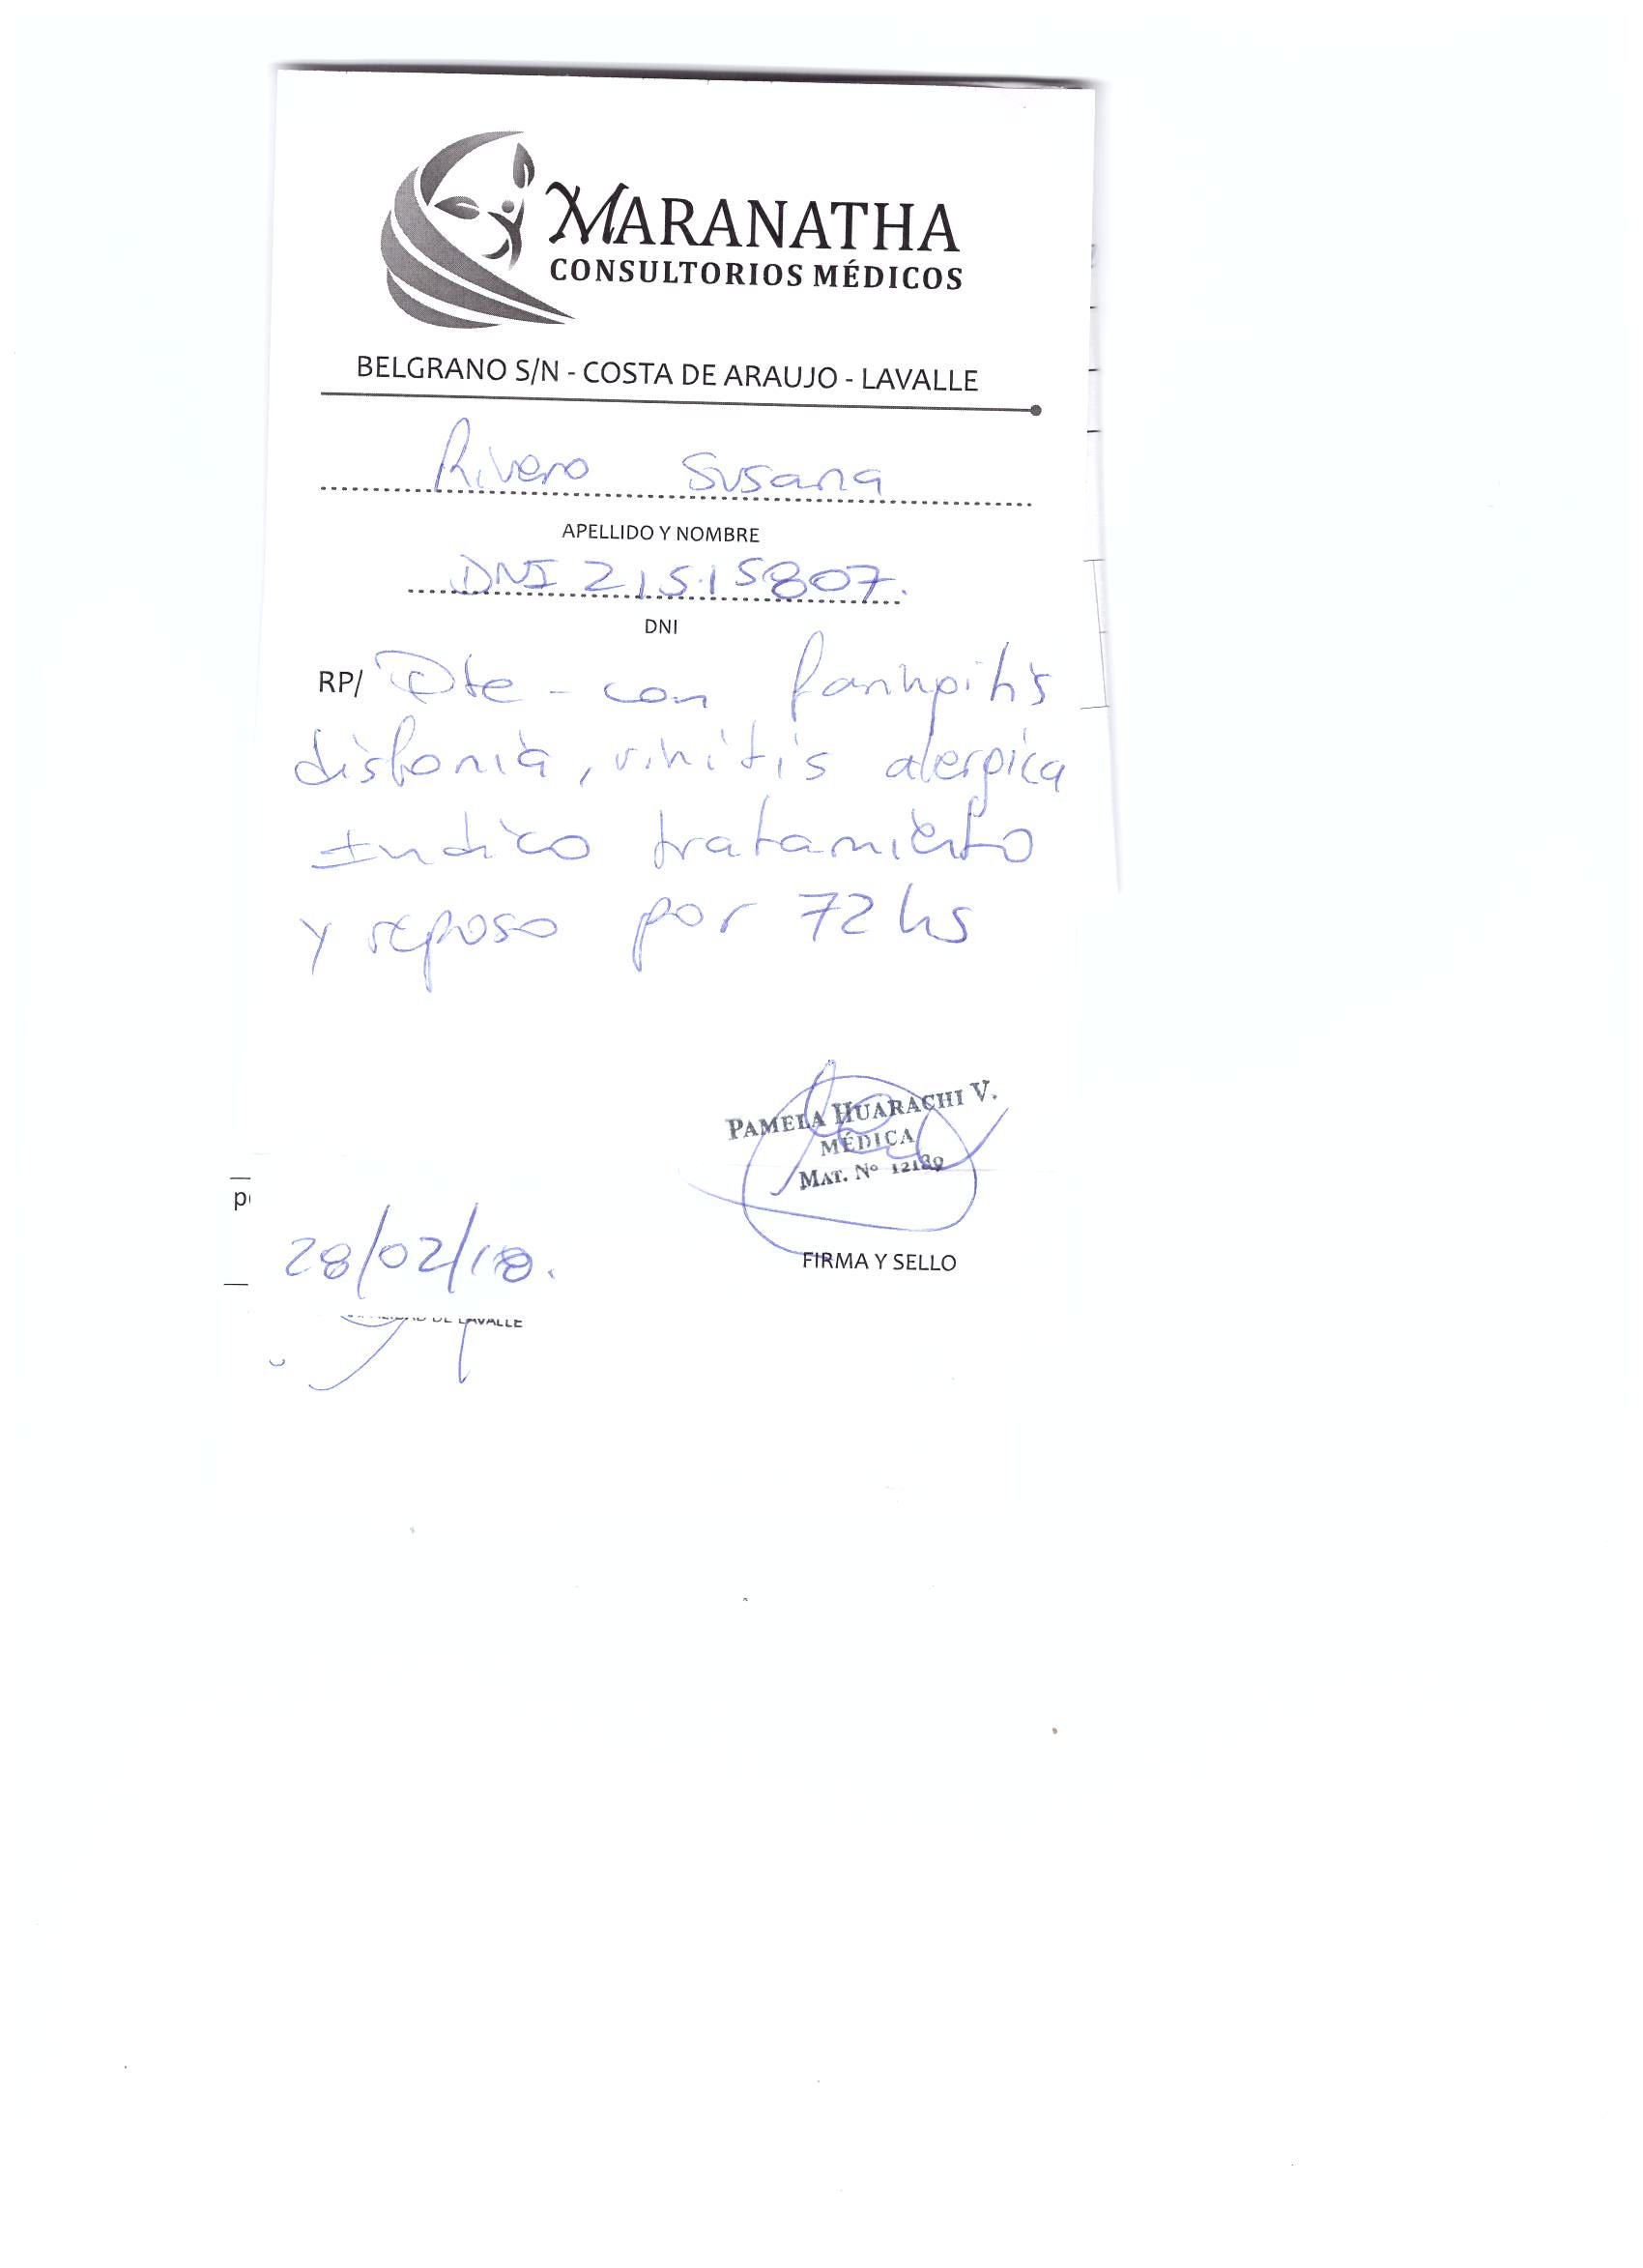 MARANATHA
CONSULTORIOS MÉDICOS
BELGRANO S/N - COSTA DE ARAUJO - LAVALLE
Rivero Susana
APELLIDO Y NOMBRE
DNI 21515807.
DNI
RP/ Pte - con faringitis
disfonia, rinitis alergica
Indico tratamiento
y reposo por 72 hs
PAMELA HUARACHI V.
MÉDICA
MAT. Nº 12189
28/02/18.
FIRMA Y SELLO
DE LAVALLE